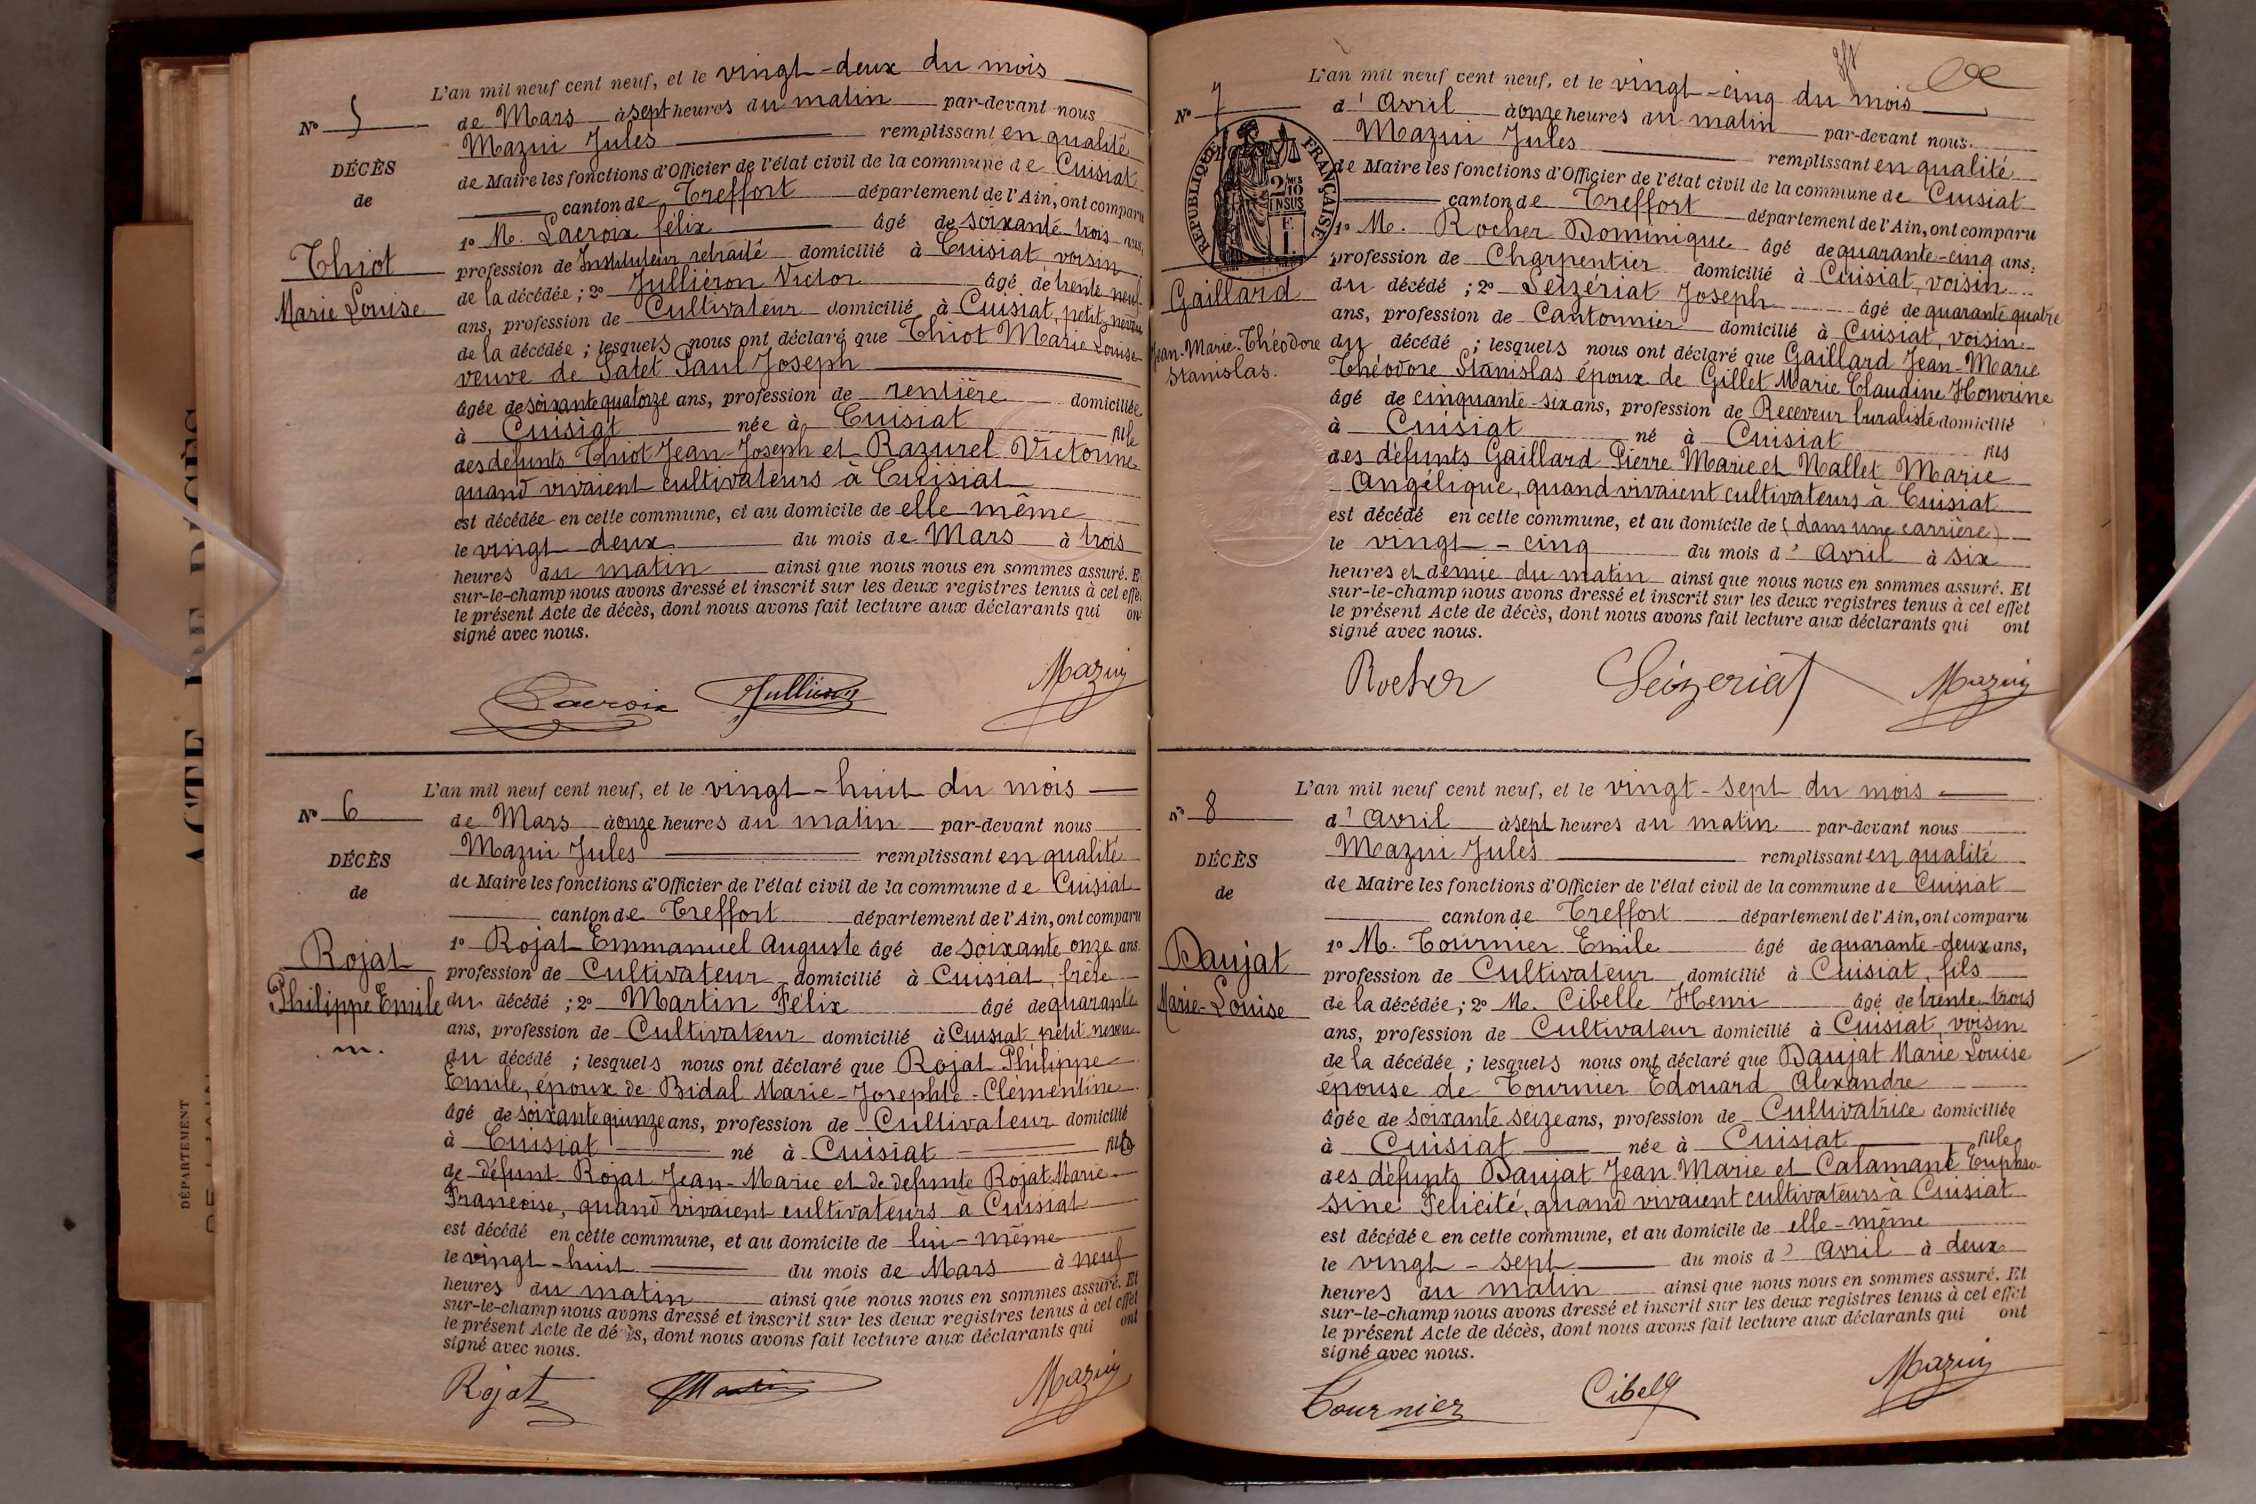 N° 5
DÉCÈS
de
Thiot
Marie Louise
L'an mil neuf cent neuf, et le vingt-deux du mois
de Mars à sept heures du matin par-devant nous
Mazui Jules remplissant en qualité
de Maire les fonctions d'Officier de l'état civil de la commune de Cuisiat
canton de Treffort département de l'Ain, ont comparu
1° M. Lacroix félix âgé de soixante trois ans,
profession de Instituteur retraité domicilié à Cuisiat voisin
de la décédée ; 2° Julliéron Victor âgé de trente neuf
ans, profession de Cultivateur domicilié à Cuisiat, petit neveu
de la décédée ; lesquels nous ont déclaré que Thiot Marie Louise
veuve de Satet Paul Joseph
âgée de soixante quatorze ans, profession de rentière domiciliée
à Cuisiat née à Cuisiat fille
des défunts Thiot Jean-Joseph et Razurel Victorine
quand vivaient cultivateurs à Cuisiat
est décédée en cette commune, et au domicile de elle-même
le vingt-deux du mois de Mars à trois
heures du matin ainsi que nous nous en sommes assuré. E
sur-le-champ nous avons dressé et inscrit sur les deux registres tenus à cet effe
le présent Acte de décès, dont nous avons fait lecture aux déclarants qui on
signé avec nous.
Lacroix Julliéron Mazuy
N° 6
DÉCÈS
de
Rojat
Philippe Emile
. m .
L'an mil neuf cent neuf, et le vingt-huit du mois
de Mars à onze heures du matin par-devant nous
Mazui Jules remplissant en qualité
de Maire les fonctions d'Officier de l'état civil de la commune de Cuisiat
canton de Treffort département de l'Ain, ont comparu
1° Rojat Emmanuel Auguste âgé de soixante onze ans
profession de Cultivateur domicilié à Cuisiat, frère
du décédé ; 2° Martin Félix âgé de quarante
ans, profession de Cultivateur domicilié à Cuisiat petit neveu
du décédé ; lesquels nous ont déclaré que Rojat Philippe
Emile, époux de Bidal Marie-Josephte-Clémentine
âgé de soixante quinze ans, profession de Cultivateur domicilié
à Cuisiat né à Cuisiat fils
de défunt Rojat Jean-Marie et de défunte Rojat Marie
Francoise, quand vivaient cultivateurs à Cuisiat
est décédé en cette commune, et au domicile de lui-même
le vingt-huit du mois de Mars à neuf
heures du matin ainsi que nous nous en sommes assuré. Et
sur-le-champ nous avons dressé et inscrit sur les deux registres tenus à cet effet
le présent Acte de décès, dont nous avons fait lecture aux déclarants qui ont
signé avec nous.
Rojat Martin Mazuy
N° 7
RÉPUBLIQUE FRANÇAISE
2/10
EN SUS
F.
1.
Gaillard
Jean-Marie-Théodore
Stanislas.
L'an mil neuf cent neuf, et le vingt-cinq du mois
d'Avril à onze heures du matin par-devant nous
Mazui Jules remplissant en qualité
de Maire les fonctions d'Officier de l'état civil de la commune de Cuisiat
canton de Treffort département de l'Ain, ont comparu
1° M. Rocher Dominique âgé de quarante-cinq ans,
profession de Charpentier domicilié à Cuisiat, voisin
du décédé ; 2° Seizeriat Joseph âgé de quarante quatre
ans, profession de Cantonnier domicilié à Cuisiat, voisin
du décédé ; lesquels nous ont déclaré que Gaillard Jean-Marie
Théodore Stanislas époux de Gillet Marie Claudine Honorine
âgé de cinquante-six ans, profession de Receveur buraliste domicilié
à Cuisiat né à Cuisiat fils
des défunts Gaillard Pierre Marie et Nallet Marie
Angélique, quand vivaient cultivateurs à Cuisiat
est décédé en cette commune, et au domicile de (dans une carrière)
le vingt-cinq du mois d'Avril à six
heures et demie du matin ainsi que nous nous en sommes assuré. Et
sur-le-champ nous avons dressé et inscrit sur les deux registres tenus à cet effet
le présent Acte de décès, dont nous avons fait lecture aux déclarants qui ont
signé avec nous.
Rocher Seizeriat Mazuy
N° 8
DÉCÈS
de
Daujat
Marie-Louise
L'an mil neuf cent neuf, et le vingt-sept du mois
d'Avril à sept heures du matin par-devant nous
Mazui Jules remplissant en qualité
de Maire les fonctions d'Officier de l'état civil de la commune de Cuisiat
canton de Treffort département de l'Ain, ont comparu
1° M. Tournier Emile âgé de quarante-deux ans,
profession de Cultivateur domicilié à Cuisiat, fils
de la décédée ; 2° M. Cibelle Henri âgé de trente-trois
ans, profession de Cultivateur domicilié à Cuisiat, voisin
de la décédée ; lesquels nous ont déclaré que Daujat Marie Louise
épouse de Tournier Edouard Alexandre
âgée de soixante seize ans, profession de Cultivatrice domiciliée
à Cuisiat née à Cuisiat fille
des défunts Daujat Jean Marie et Catamant Euphro
sine Félicité, quand vivaient cultivateurs à Cuisiat
est décédée en cette commune, et au domicile de elle-même
le vingt-sept du mois d'Avril à deux
heures du matin ainsi que nous nous en sommes assuré. Et
sur-le-champ nous avons dressé et inscrit sur les deux registres tenus à cet effet
le présent Acte de décès, dont nous avons fait lecture aux déclarants qui ont
signé avec nous.
Tournier Cibelle Mazuy
ACTE DE DÉCÈS
DÉPARTEMENT
DE L'AIN